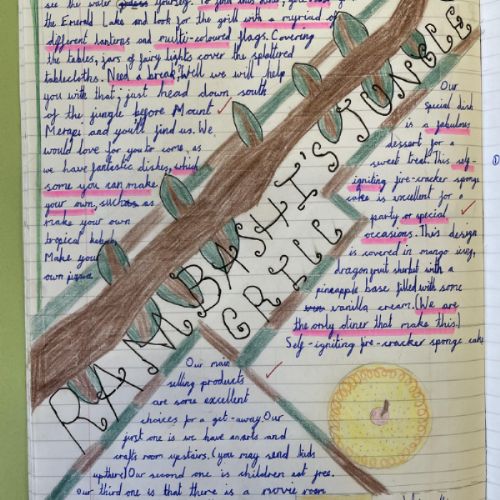 see the water yourself. To find this diner, you
the Emerald Lake and look for the grill with a myriad of
different lanterns and multi-coloured flags. Covering
the tables, jars of fairy lights cover the splattered
tablecloths. Need a break? Well we will help
you with that; just head down south
of the jungle before Mount
Merapi and you'll find us. We
would love for you to come, as
we have fantastic dishes, which
some you can make
your own, such as
make your own
tropical kebab,
Make your
own pizza
RAMBASHI'S JUNGLE
GRILL
Our
special dish
is a fabulous
dessert for a
sweet treat. This self-
igniting fire-cracker sponge
cake is excellent for a
party or special
occasions. This design
is covered in mango icing,
dragonfruit sherbet with a
pineapple base filled with some
vanilla cream. (We are
the only diner that make this)
Self-igniting fire-cracker sponge cake
Our main
selling products
are some excellent
choices for a get-away. Our
first one is we have an arts and
crafts room upstairs. (you may send kids
up there) Our second one is children eat free.
Our third one is that there is a movie room